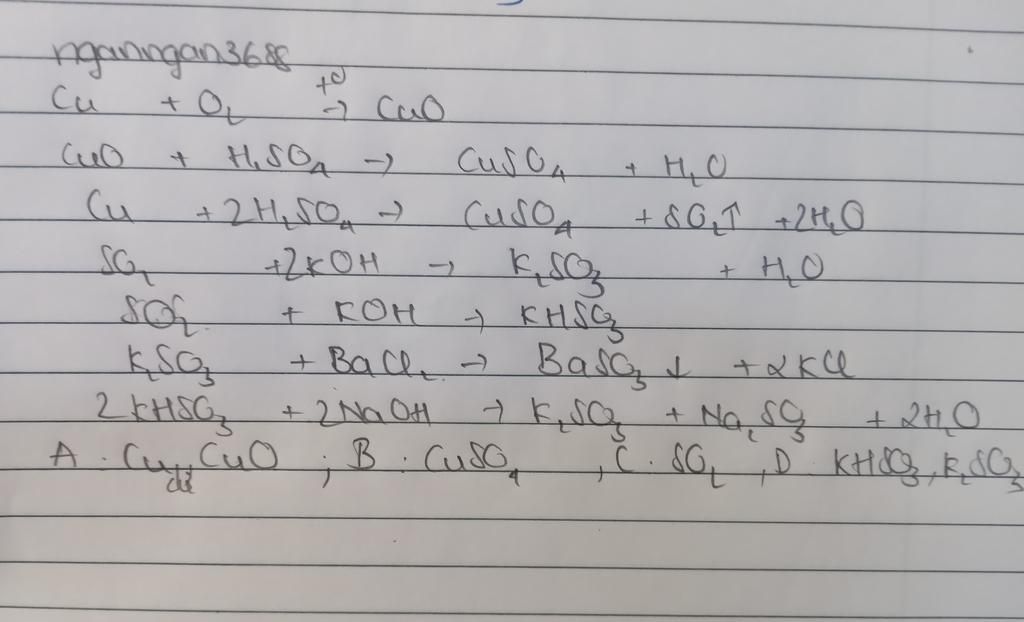 nganngan3688
Cu + O₂ t⁰→ CuO
CuO + H₂SO₄ → CuSO₄ + H₂O
Cu + 2H₂SO₄ → CuSO₄ + SO₂↑ + 2H₂O
SO₂ + 2KOH → K₂SO₃ + H₂O
SO₂ + KOH → KHSO₃
K₂SO₃ + BaCl₂ → BaSO₃↓ + 2KCl
2KHSO₃ + 2NaOH → K₂SO₃ + Na₂SO₃ + 2H₂O
A. Cu dư, CuO ; B. CuSO₄ , C. SO₂ , D. KHSO₃, K₂SO₃